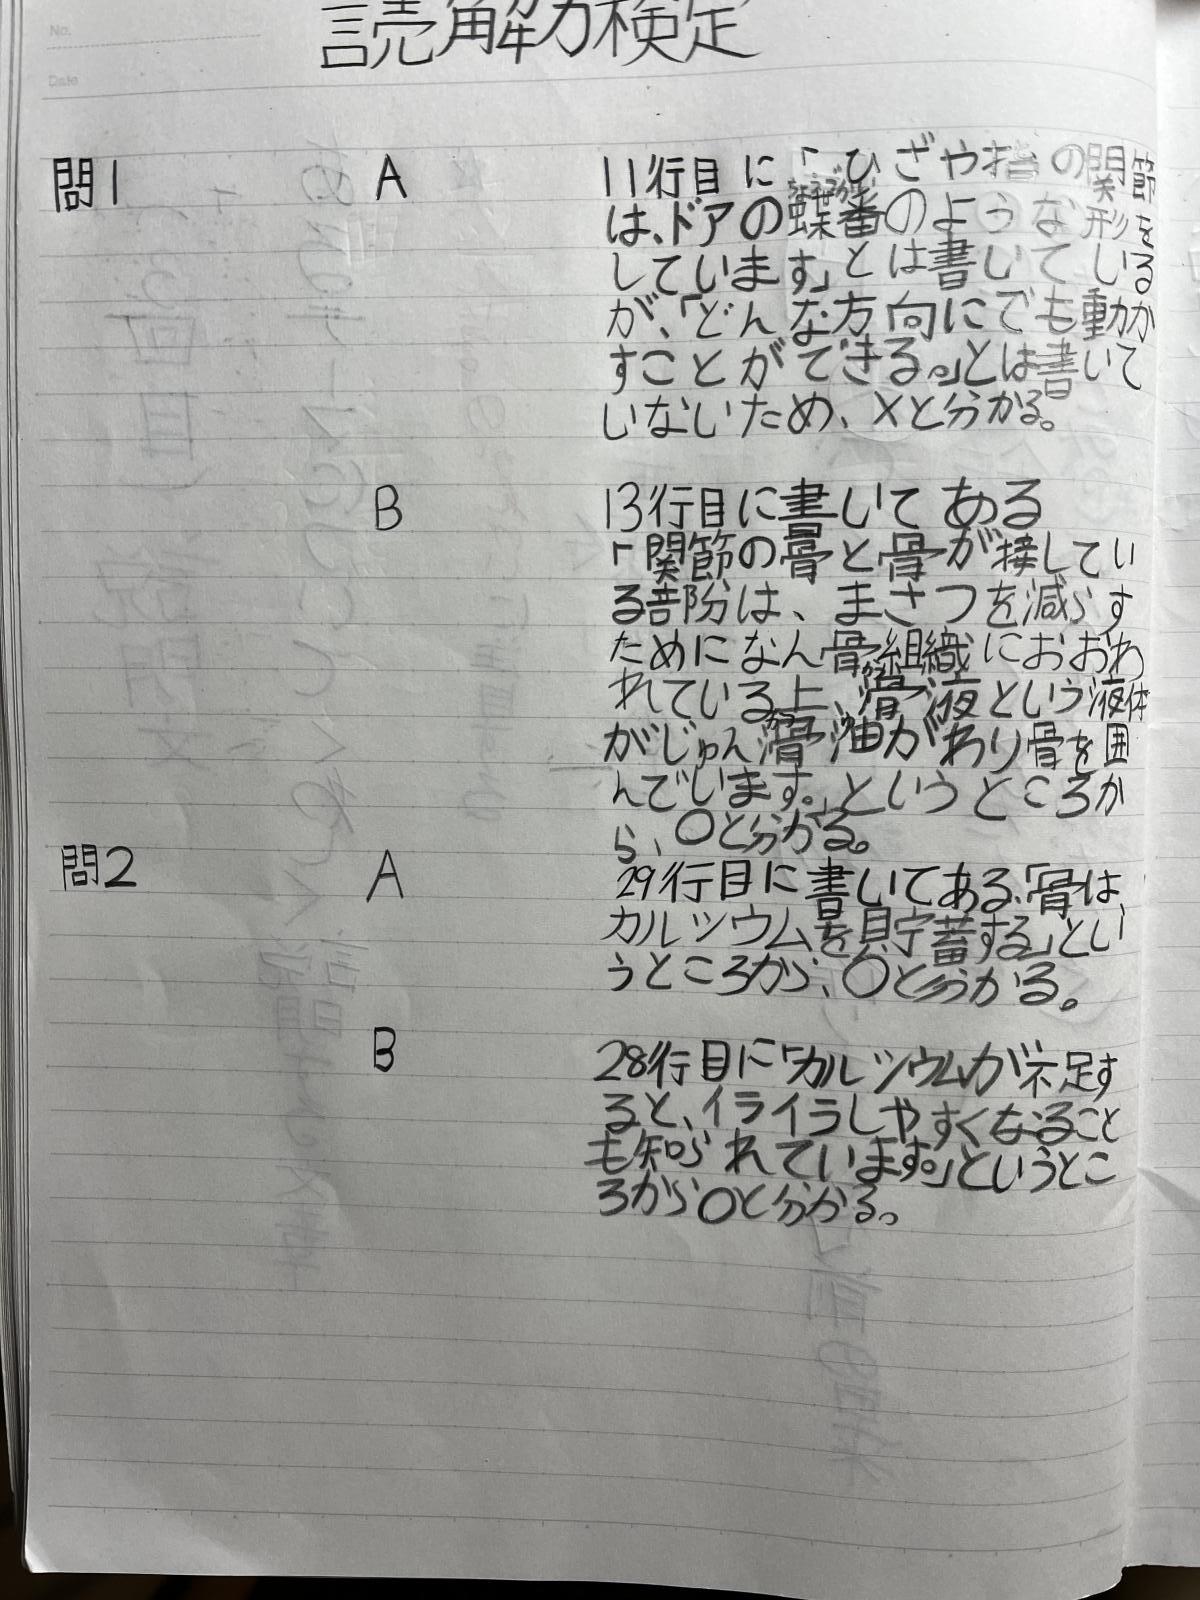 No.
Date
読解力検定
問1 A 11行目に「ひざや指の関節
は、ドアの蝶番のような形を
しています」とは書いている
が、「どんな方向にでも動か
すことができる。」とは書いて
いないため、×と分かる。
B 13行目に書いてある
「関節の骨と骨が接してい
る部分は、まさつを減らす
ためになん骨組織におおわ
れている上、滑液という液体
がじゅん滑油がわり骨を囲
んでいます。」というところか
ら、○と分かる。
問2 A 29行目に書いてある、「骨は、
カルシウムを貯蓄する」とい
うところから、○と分かる。
B 28行目に「カルシウムが不足す
ると、イライラしやすくなること
も知られています。」というとこ
ろから○と分かる。